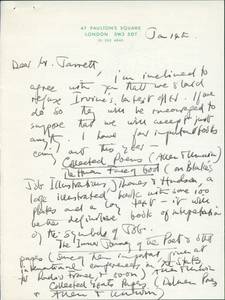 47 PAULTONS SQUARE
LONDON SW3 5DT
Jan 14th
Dear Mr. Jarrett
I'm inclined to
agree with you that we should
refuse Irvine's latest offer. If we
do so they will be encouraged to
suppose that we will accept just
anything. I have four important books
coming out this year
Collected Poems (Allen & Unwin)
The Human Face of God (on Blake's
Job Illustrations, Thames & Hudson a
large illustrated book with some 100
plates and a text - it will
be the definitive book of interpretation
of the symbols of Job.
The Inner Journey of the Poet & other
papers (some given important
international conferences in the States
& soon) Allen & Unwin
Collected Yeats Papers (Dolmen Press
& Allen & Unwin)